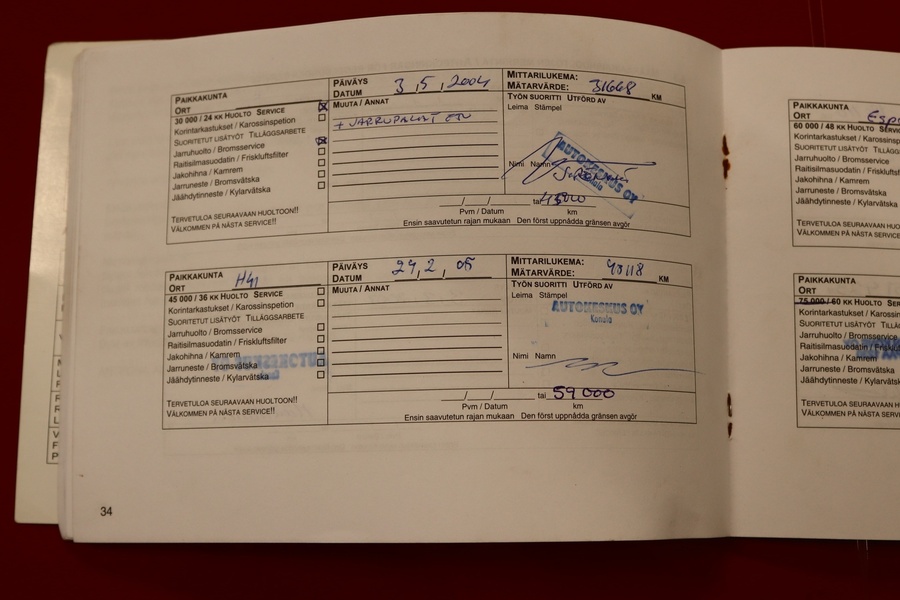 PAIKKAKUNTA
ORT
PÄIVÄYS
DATUM 3,5,2004
MITTARILUKEMA:
MÄTARVÄRDE: 31668 KM
30 000 / 24 KK HUOLTO SERVICE
Korintarkastukset / Karossinspetion
SUORITETUT LISÄTYÖT TILLÄGGSARBETE
Jarruhuolto / Bromsservice
Raitisilmasuodatin / Friskluftsfilter
Jakohihna / Kamrem
Jarruneste / Bromsvätska
Jäähdytinneste / Kylarvätska
TERVETULOA SEURAAVAAN HUOLTOON!!
VÄLKOMMEN PÅ NÄSTA SERVICE!!
MUUTA / ANNAT
+ JARRUPALAT ETU
TYÖN SUORITTI UTFÖRD AV
Leima Stämpel
AUTOKESKUS OY
Konala
Nimi Namn
__/__/____ tai 45000
Pvm / Datum km
Ensin saavutetun rajan mukaan Den först uppnådda gränsen avgör
PAIKKAKUNTA
ORT
PÄIVÄYS
DATUM 24,2,05
MITTARILUKEMA:
MÄTARVÄRDE: 43118 KM
45 000 / 36 KK HUOLTO SERVICE
Korintarkastukset / Karossinspetion
SUORITETUT LISÄTYÖT TILLÄGGSARBETE
Jarruhuolto / Bromsservice
Raitisilmasuodatin / Friskluftsfilter
Jakohihna / Kamrem
Jarruneste / Bromsvätska
Jäähdytinneste / Kylarvätska
TERVETULOA SEURAAVAAN HUOLTOON!!
VÄLKOMMEN PÅ NÄSTA SERVICE!!
MUUTA / ANNAT
TYÖN SUORITTI UTFÖRD AV
Leima Stämpel
AUTOKESKUS OY
Konala
Nimi Namn
__/__/____ tai 59000
Pvm / Datum km
Ensin saavutetun rajan mukaan Den först uppnådda gränsen avgör
34
PAIKKAKUNTA
ORT Esp
60 000 / 48 KK HUOLTO SERVIC
Korintarkastukset / Karossin
SUORITETUT LISÄTYÖT TILLÄGG
Jarruhuolto / Bromsservice
Raitisilmasuodatin / Friskluf
Jakohihna / Kamrem
Jarruneste / Bromsvätska
Jäähdytinneste / Kylarvätska
TERVETULOA SEURAAVAAN HU
VÄLKOMMEN PÅ NÄSTA SERVICE
PAIKKAKUNTA
ORT
75 000 / 60 KK HUOLTO SER
Korintarkastukset / Karossin
SUORITETUT LISÄTYÖT TILLÄGG
Jarruhuolto / Bromsservice
Raitisilmasuodatin / Friskluf
Jakohihna / Kamrem
Jarruneste / Bromsvätska
Jäähdytinneste / Kylarvätska
TERVETULOA SEURAAVAAN H
VÄLKOMMEN PÅ NÄSTA SERVI